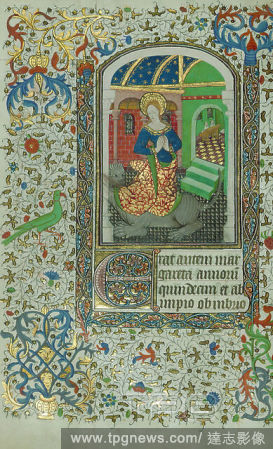 Erat autem mar
gareta annorū
quindecim et ab
impio olimbrio
www.tpgnews.com/ 達志影像